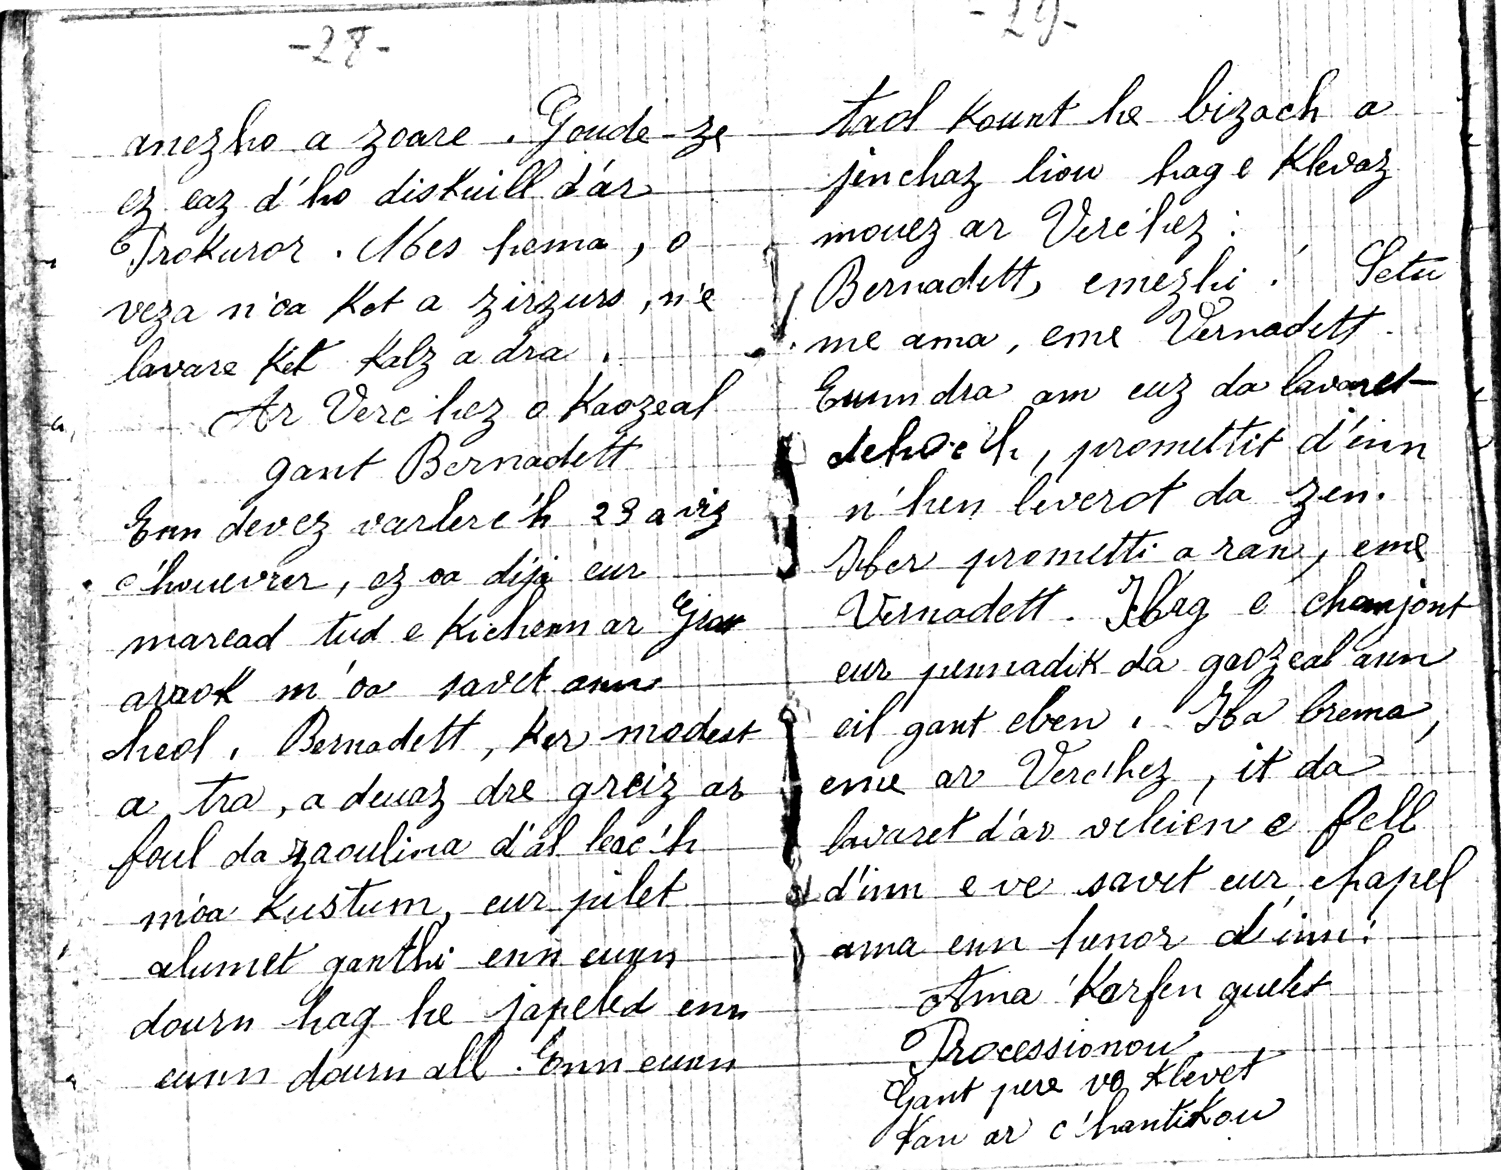 -28-
anezho a zoare. Goude-ze
ez eaz d'ho diskuill d'ar
Prokuror. Mes hema, o
veza n'oa ket a zirzurs, n'e
lavare ket kalz a dra.
Ar Verc'hez o kaozeal
gant Bernadett
Enn devez varlerc'h 23 a viz
c'houevrer, ez oa dija eur
maread tud e kichenn ar Grot
araok m'oa savet ann
heol. Bernadett, ker modest
a tra, a deuaz dre greiz ar
foul da zaoulina d'al leac'h
m'oa kustum, eur pilet
alumet ganthi enn eunn
dourn hag he japeled enn
eunn dourn all. Enn eunn
-29-
taol kount he bizach a
jenchaz liou hag e klevaz
mouez ar Verc'hez:
Bernadett, emezhi! Setu
me ama, eme Vernadett.
Eunn dra am euz da lavaret
dehoc'h, promettit d'inn
n'hen leverot da zen.
Her prometti a ran, eme
Vernadett. Hag e chomjont
eur pennadik da gaozeal ann
eil gant eben. Ha brema,
eme ar Verc'hez, it da
lavaret d'ar veleien e fell
d'inn e ve savet eur chapel
ama enn henor d'inn:
Ama karfen guelet
Processionou
Gant pere vo klevet
Kan ar c'hantikou